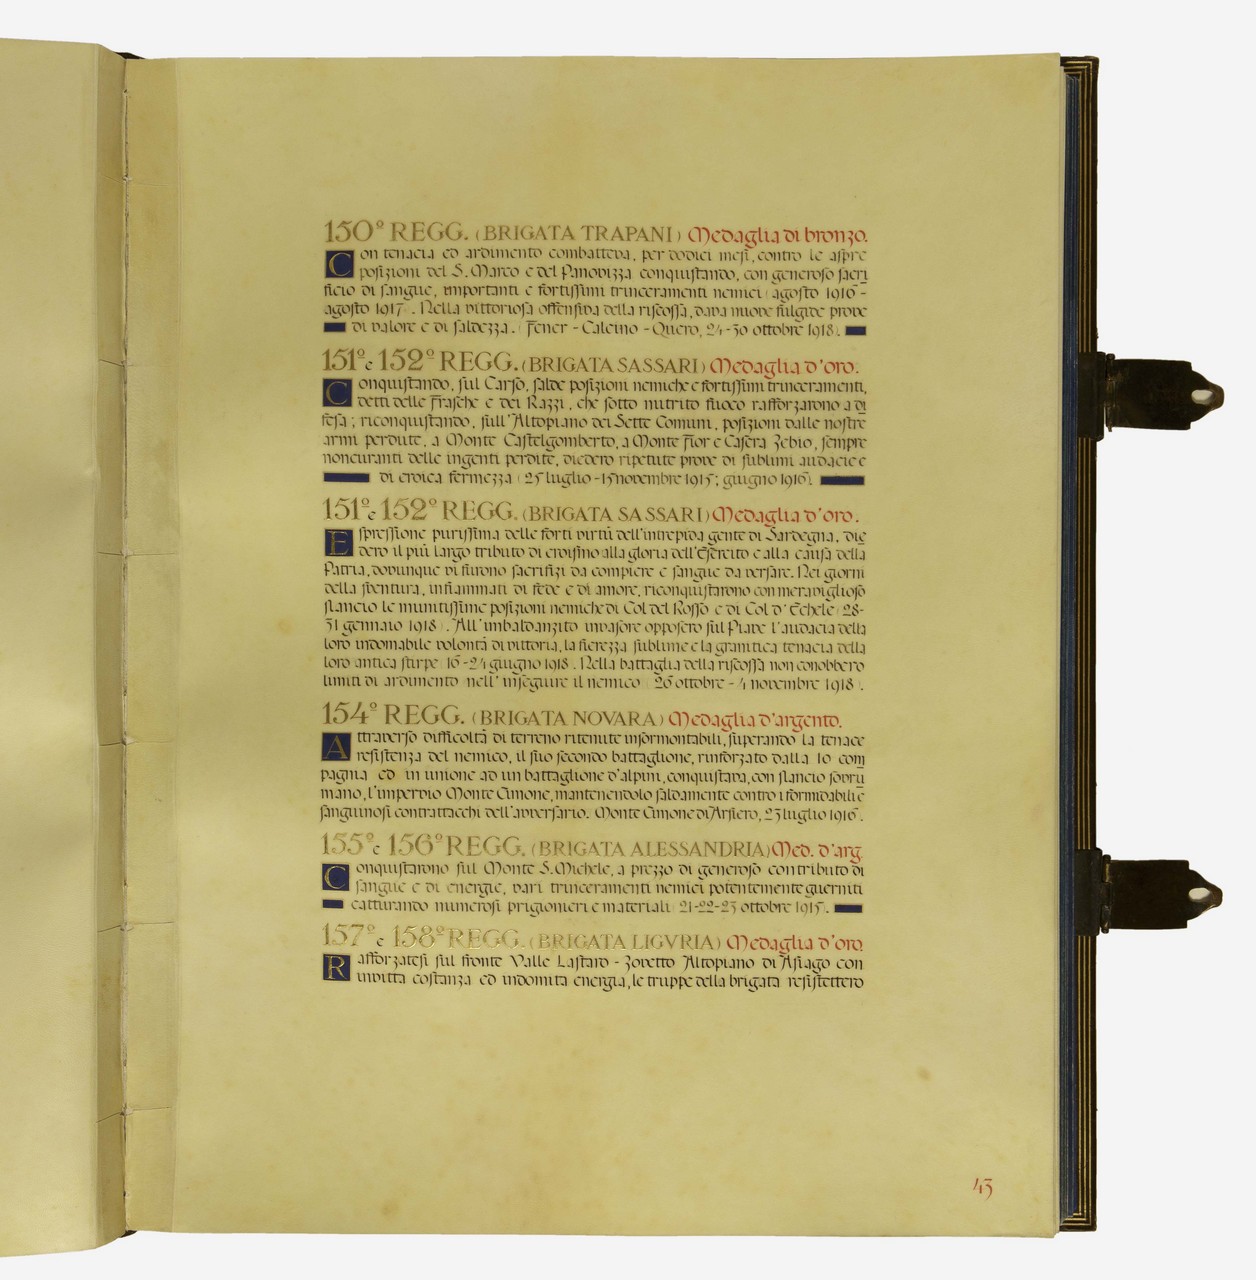 150º REGG. (BRIGATA TRAPANI) Medaglia di bronzo.
Con tenacia ed ardimento combatteva, per dodici mesi, contro le aspre
posizioni del S. Marco e del Panovizza conquistando, con generoso sacri
ficio di sangue, importanti e fortissimi trinceramenti nemici (agosto 1916 -
agosto 1917). Nella vittoriosa offensiva della riscossa, dava nuove fulgide prove
di valore e di saldezza. (Fener - Calcino - Quero, 24-30 ottobre 1918).
151º e 152º REGG. (BRIGATA SASSARI) Medaglia d'oro.
Conquistando, sul Carso, salde posizioni nemiche e fortissimi trinceramenti,
detti delle Frasche e dei Razzi, che sotto nutrito fuoco rafforzarono a di
fesa; riconquistando, sull'Altopiano dei Sette Comuni, posizioni dalle nostre
armi perdute, a Monte Castelgomberto, a Monte Fior e Casera Zebio, sempre
noncuranti delle ingenti perdite, diedero ripetute prove di sublimi audacie e
di eroica fermezza (25 luglio - 15 novembre 1915; giugno 1916).
151º e 152º REGG. (BRIGATA SASSARI) Medaglia d'oro.
Espressione purissima delle forti virtù dell'intrepida gente di Sardegna, die
dero il più largo tributo di eroismo alla gloria dell'Esercito e alla causa della
Patria, dovunque vi furono sacrifizi da compiere e sangue da versare. Nei giorni
della sventura, infiammati di fede e di amore, riconquistarono con meraviglioso
slancio le munitissime posizioni nemiche di Col del Rosso e di Col d'Echele (28-
31 gennaio 1918). All'imbaldanzito invasore opposero sul Piave l'audacia della
loro indomabile volontà di vittoria, la fierezza sublime e la granitica tenacia della
loro antica stirpe (16-24 giugno 1918). Nella battaglia della riscossa non conobbero
limiti di ardimento nell'inseguire il nemico (26 ottobre - 4 novembre 1918).
154º REGG. (BRIGATA NOVARA) Medaglia d'argento.
Attraverso difficoltà di terreno ritenute insormontabili, superando la tenace
resistenza del nemico, il suo secondo battaglione, rinforzato dalla 10 com
pagnia ed in unione ad un battaglione d'alpini, conquistava, con slancio sovru
mano, l'impervio Monte Cimone, mantenendolo saldamente contro i formidabili e
sanguinosi contrattacchi dell'avversario. (Monte Cimone di Arsiero, 23 luglio 1916).
155º e 156º REGG. (BRIGATA ALESSANDRIA) Med. d'arg.
Conquistarono sul Monte S. Michele, a prezzo di generoso contributo di
sangue e di energie, vari trinceramenti nemici potentemente guerniti
catturando numerosi prigionieri e materiali (21-22-23 ottobre 1915).
157º e 158º REGG. (BRIGATA LIGVRIA) Medaglia d'oro.
Rafforzatesi sul fronte Valle Lastaro - Zovetto (Altopiano di Asiago) con
invitta costanza ed indomita energia, le truppe della brigata resistettero
43